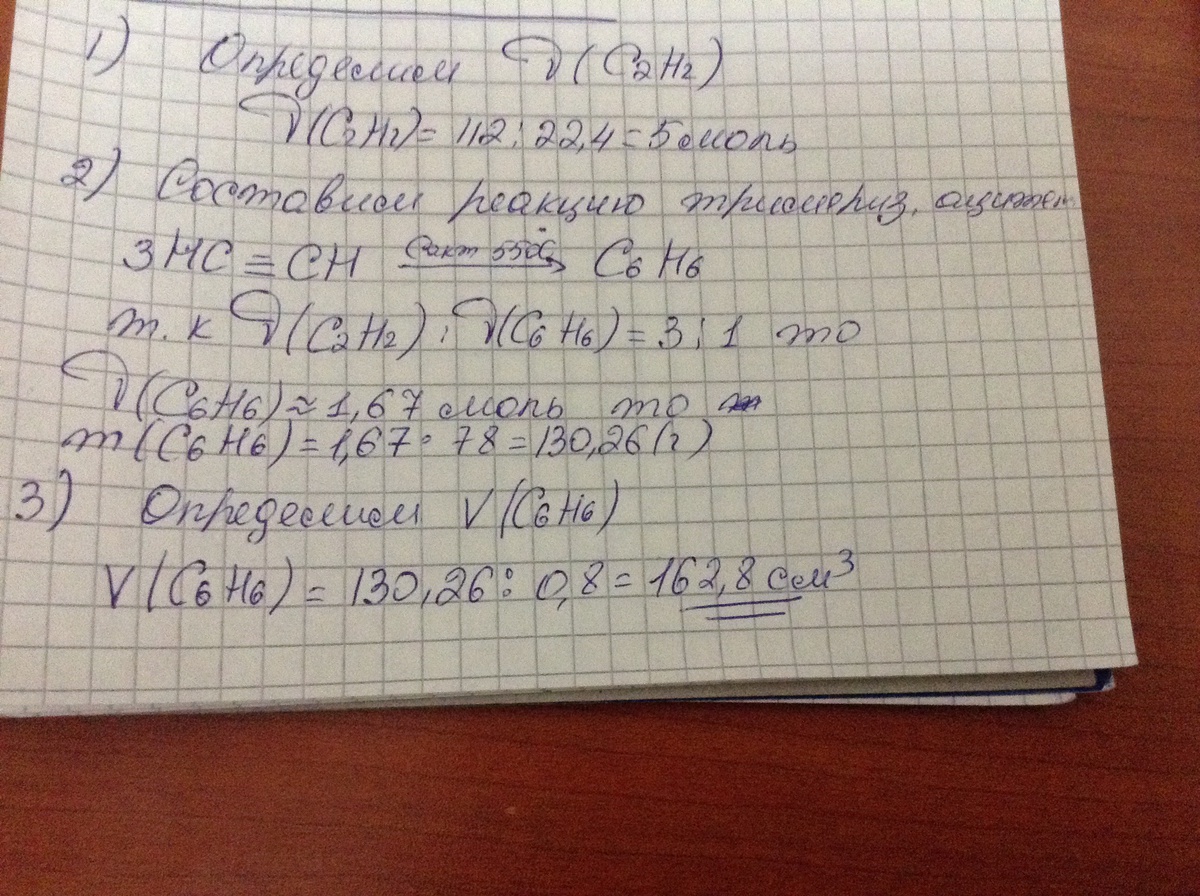 1) Определим ν(C₂H₂)
ν(C₂H₂) = 112 : 22,4 = 5 моль
2) Составим реакцию тримериз. ацетил
3HC ≡ CH Cакт 550°C → C₆H₆
т. к ν(C₂H₂) : ν(C₆H₆) = 3 : 1 то
ν(C₆H₆) ≈ 1,67 моль то
m(C₆H₆) = 1,67 · 78 = 130,26 (г)
3) Определим V(C₆H₆)
V(C₆H₆) = 130,26 : 0,8 = 162,8 см³